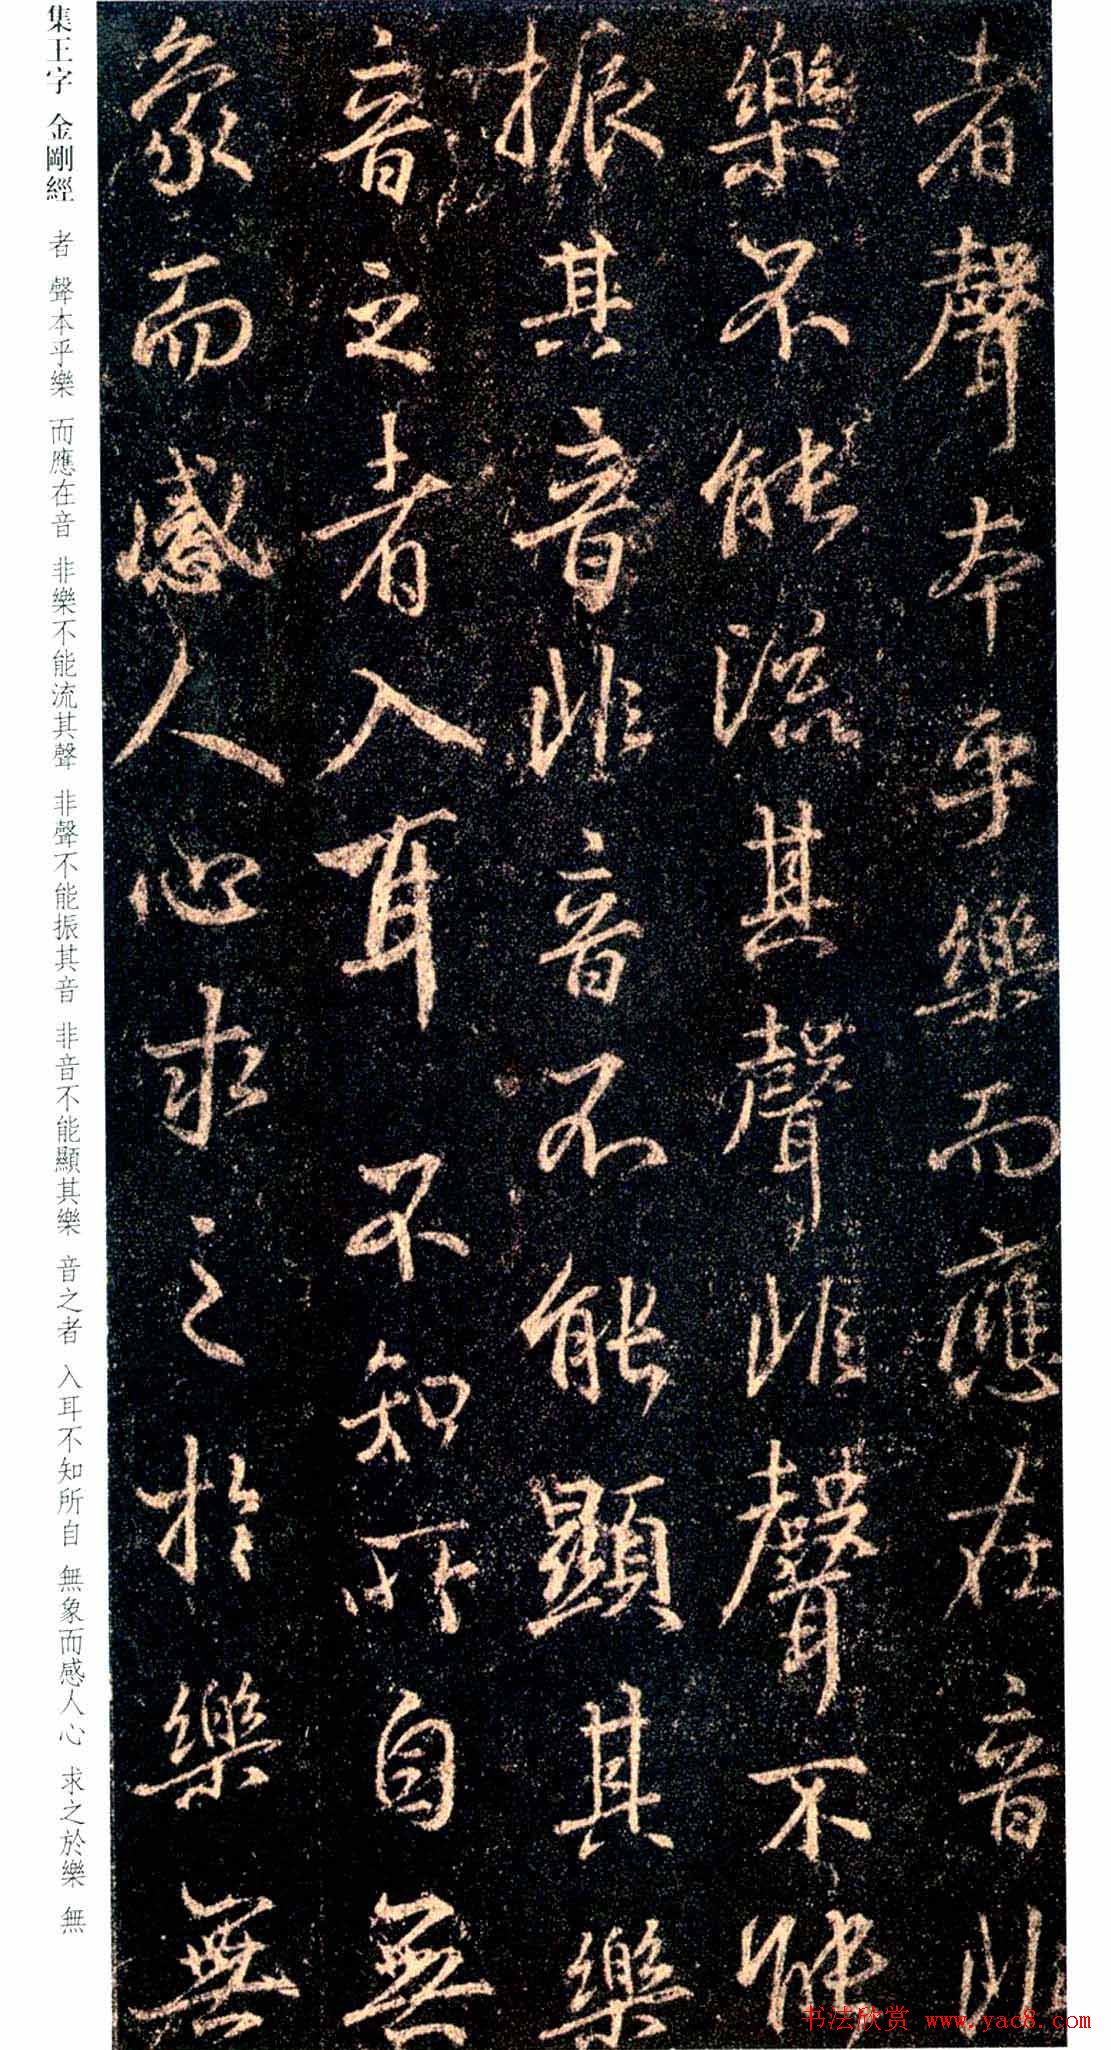 者聲本乎樂而應在音非
樂不能流其聲非聲不能
振其音非音不能顯其樂
音之者入耳不知所自無
象而感人心求之於樂無
集王字 金剛經 者 聲本乎樂 而應在音 非樂不能流其聲 非聲不能振其音 非音不能顯其樂 音之者 入耳不知所自 無象而感人心 求之於樂 無
书法欣赏 www.yac8.com